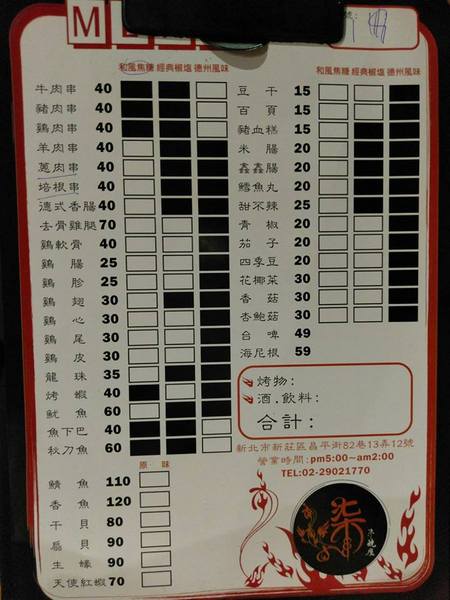 M
和風焦糖 經典椒塩 德州風味
牛肉串 40
豬肉串 40
鷄肉串 40
羊肉串 40
蔥肉串 40
培根串 40
德式香腸 40
去骨雞腿 70
鷄軟骨 40
鷄腸 25
鷄胗 25
鷄翅 30
鷄心 30
鷄尾 30
鷄皮 30
龍珠 35
烤蝦 40
魷魚 60
魚下巴 40
秋刀魚 60
原味
鯖魚 110
香魚 120
干貝 80
扇貝 90
生蠔 90
天使紅蝦 70
和風焦糖 經典椒塩 德州風味
豆干 15
百頁 15
豬血糕 15
米腸 20
鑫鑫腸 20
鱈魚丸 20
甜不辣 25
青椒 20
茄子 20
四季豆 20
花椰菜 30
香菇 30
杏鮑菇 30
台啤 49
海尼根 59
烤物:
酒.飲料:
合計:
新北市新莊區昌平街82巷13弄12號
營業時間:pm5:00~am2:00
TEL:02-29021770
柒